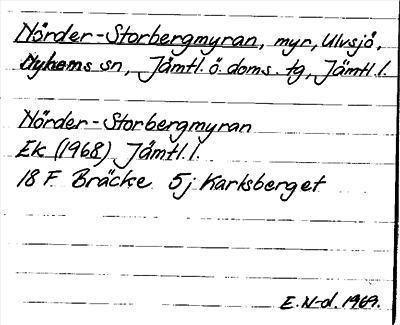 Nörder-Storbergmyran, myr, Ulvsjö,
Nyhems sn, Jämtl. ö. doms. tg, Jämtl. l.
Nörder-Storbergmyran
Ek (1968) Jämtl. l.
18 F Bräcke 5j Karlsberget
E. N-d. 1969.